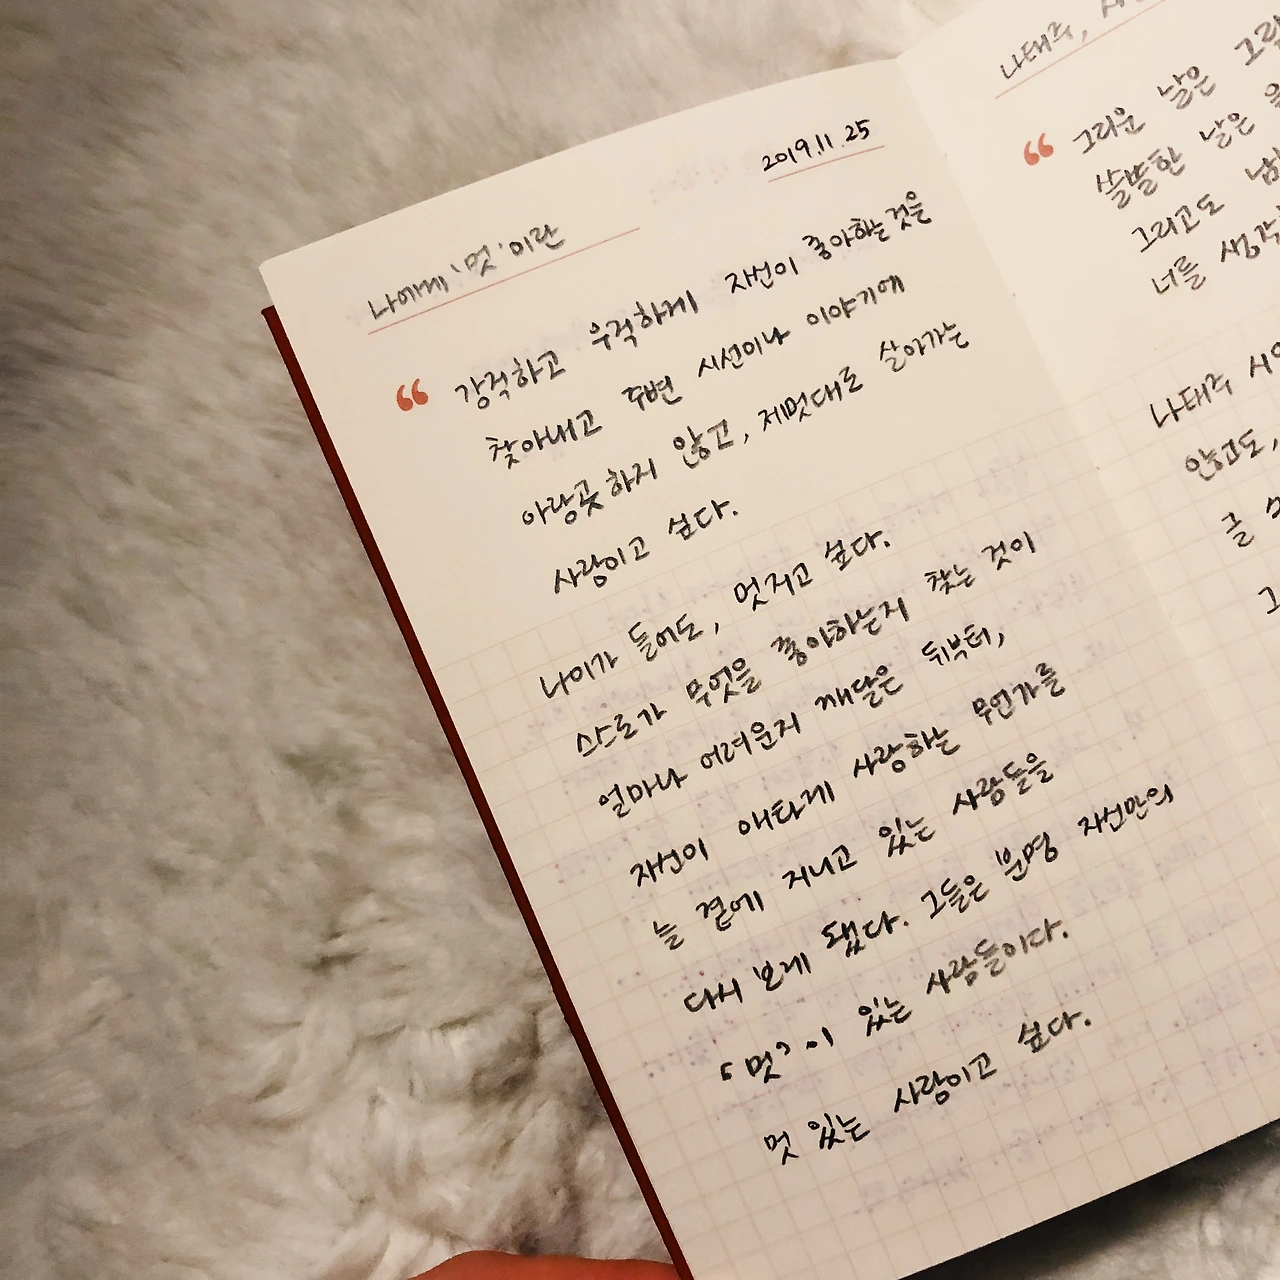 나에게 '멋'이란
2019.11.25
강직하고 우직하게 자신이 좋아하는 것을
찾아내고 주변 시선이나 이야기에
아랑곳하지 않고, 제멋대로 살아가는
사람이고 싶다.
나이가 들어도, 멋지고 싶다.
스스로가 무엇을 좋아하는지 찾는 것이
얼마나 어려운지 깨달은 뒤부터,
자신이 애타게 사랑하는 무언가를
늘 곁에 지니고 있는 사람들을
다시 보게 됐다. 그들은 분명 자신만의
'멋'이 있는 사람들이다.
멋 있는 사람이고 싶다.
나태주,
그리운 날은
쓸쓸한 날은
그리고도
너를
나태주
않고도,
글